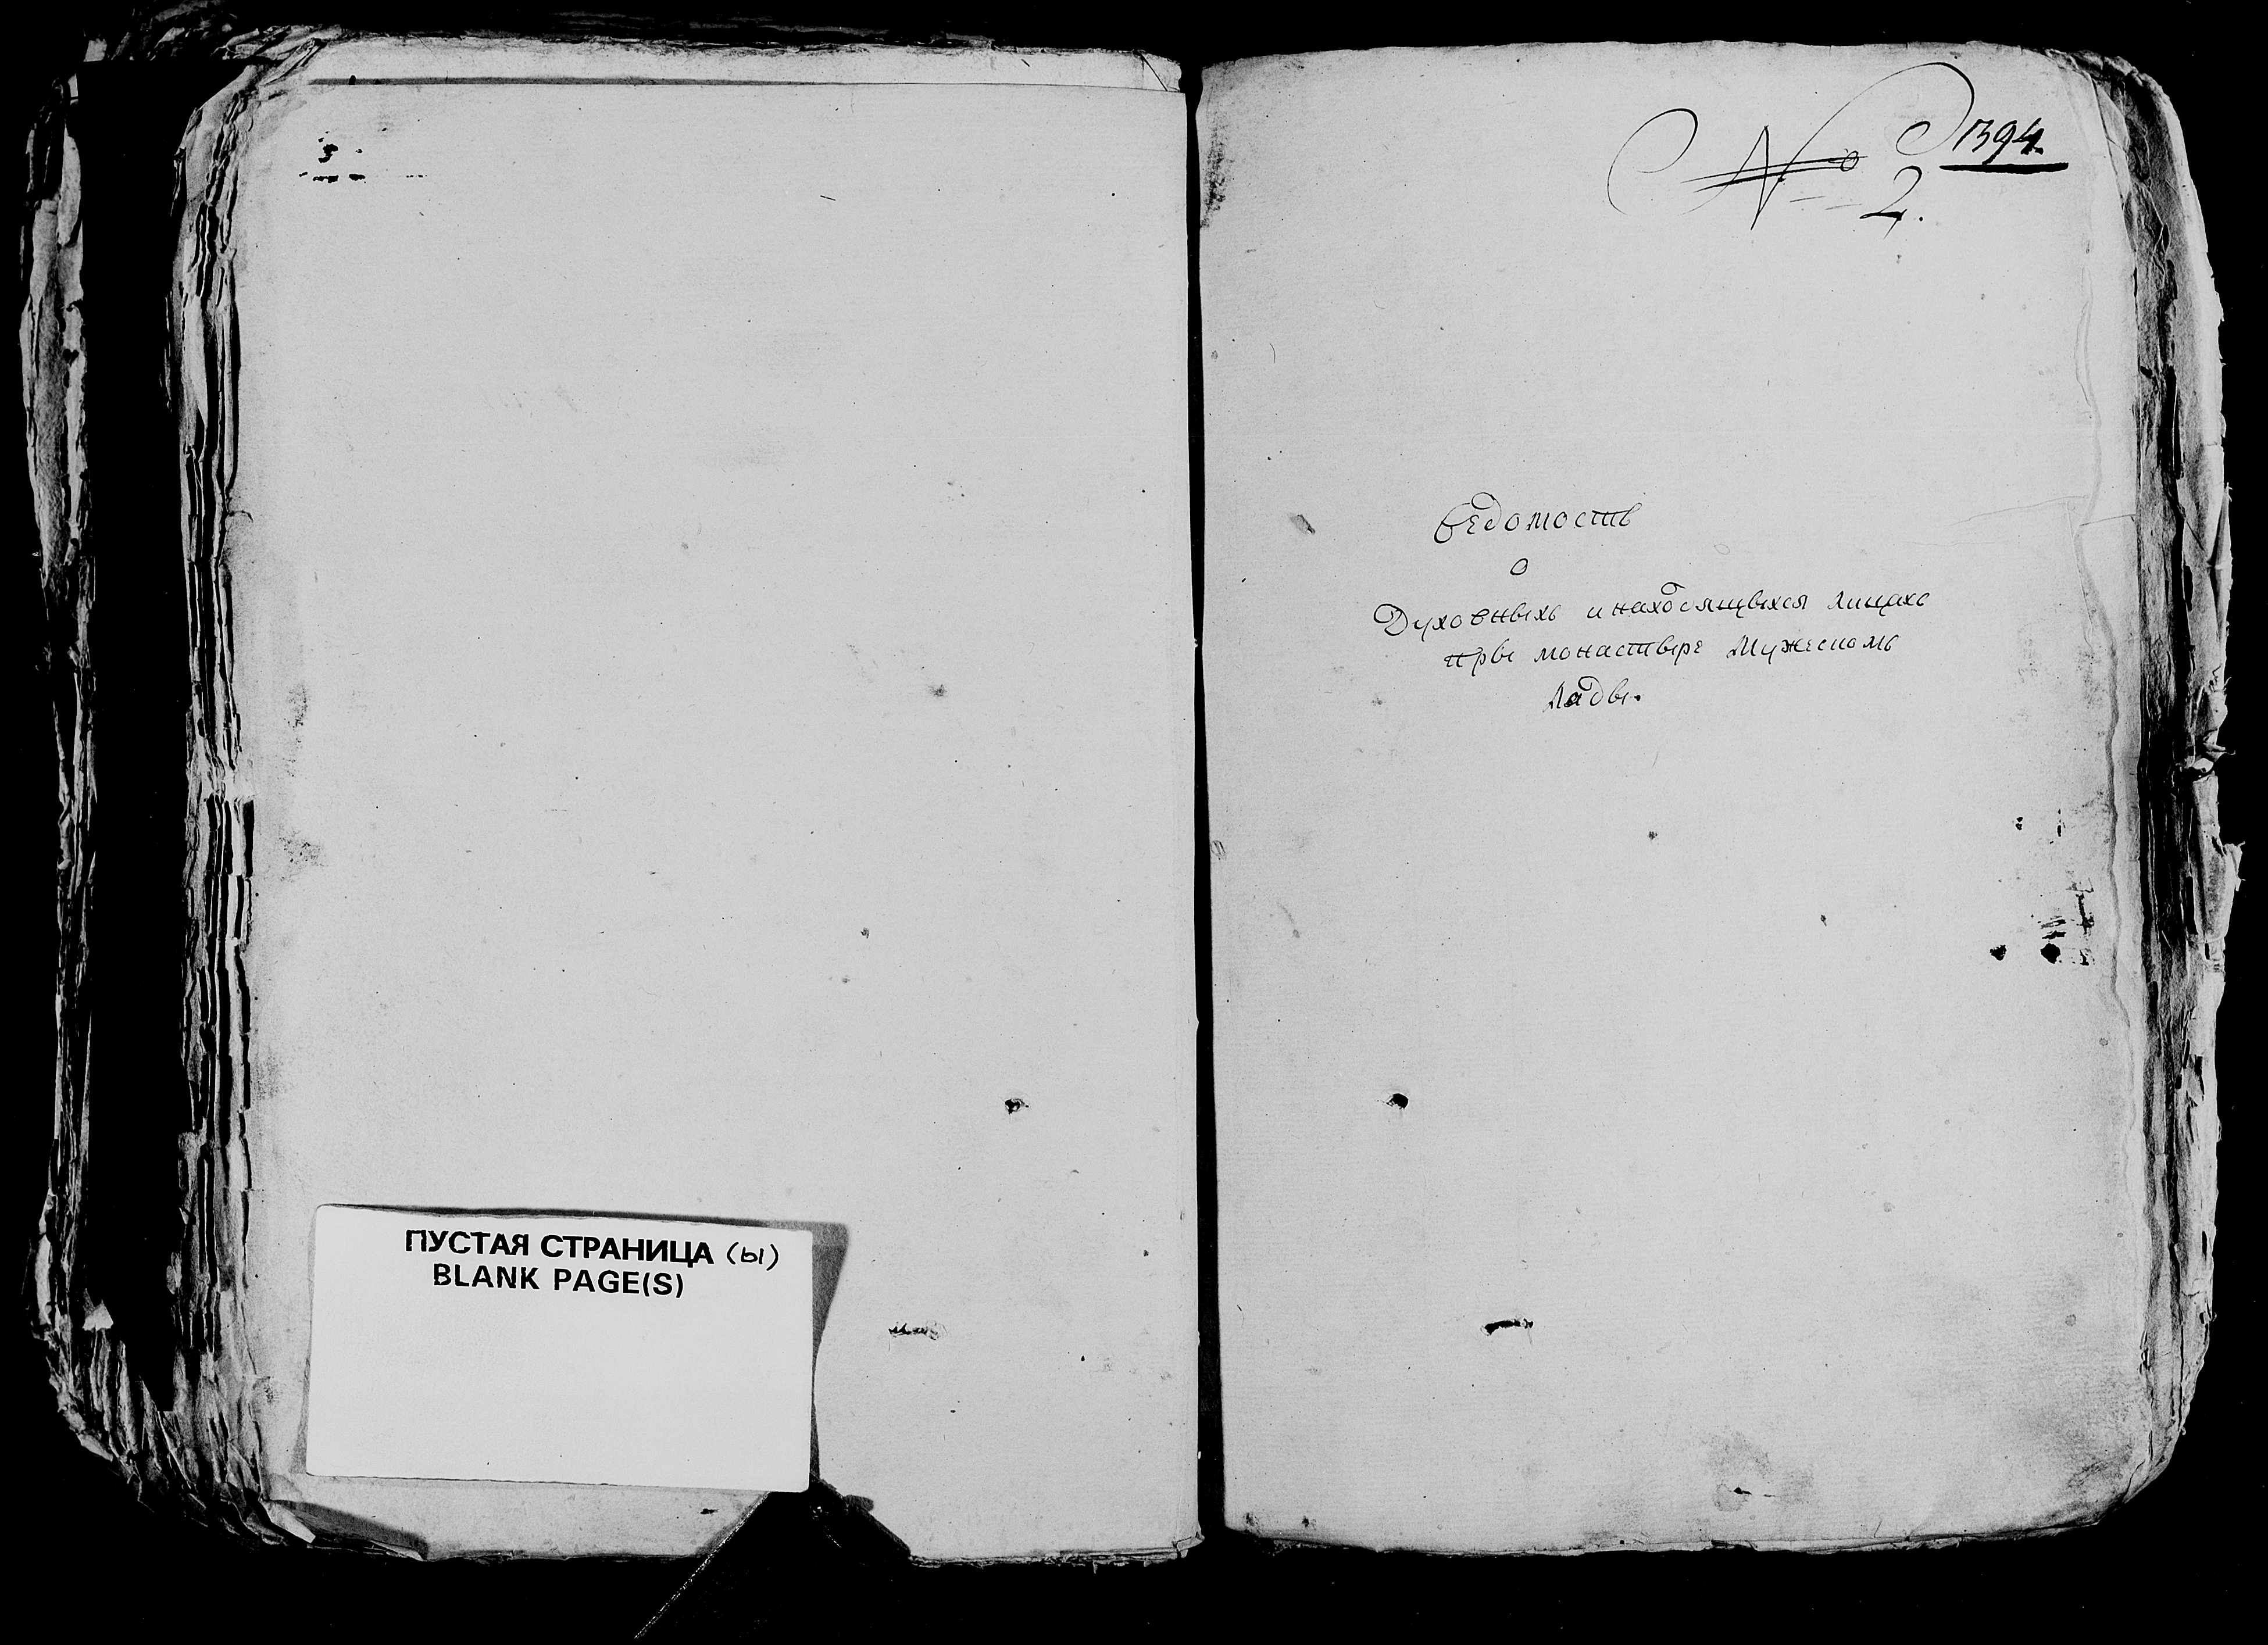 ПУСТАЯ СТРАНИЦА (ы)
BLANK PAGE(S)
1394.
№ 2.
Ведомость
о
Духовныхъ и находящыхся лицахъ
пры монастыре Мужескомъ
Лады.